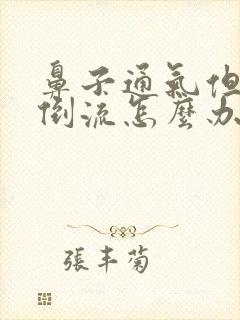 鼻子通氣但
倒流怎麼办
張丰菊